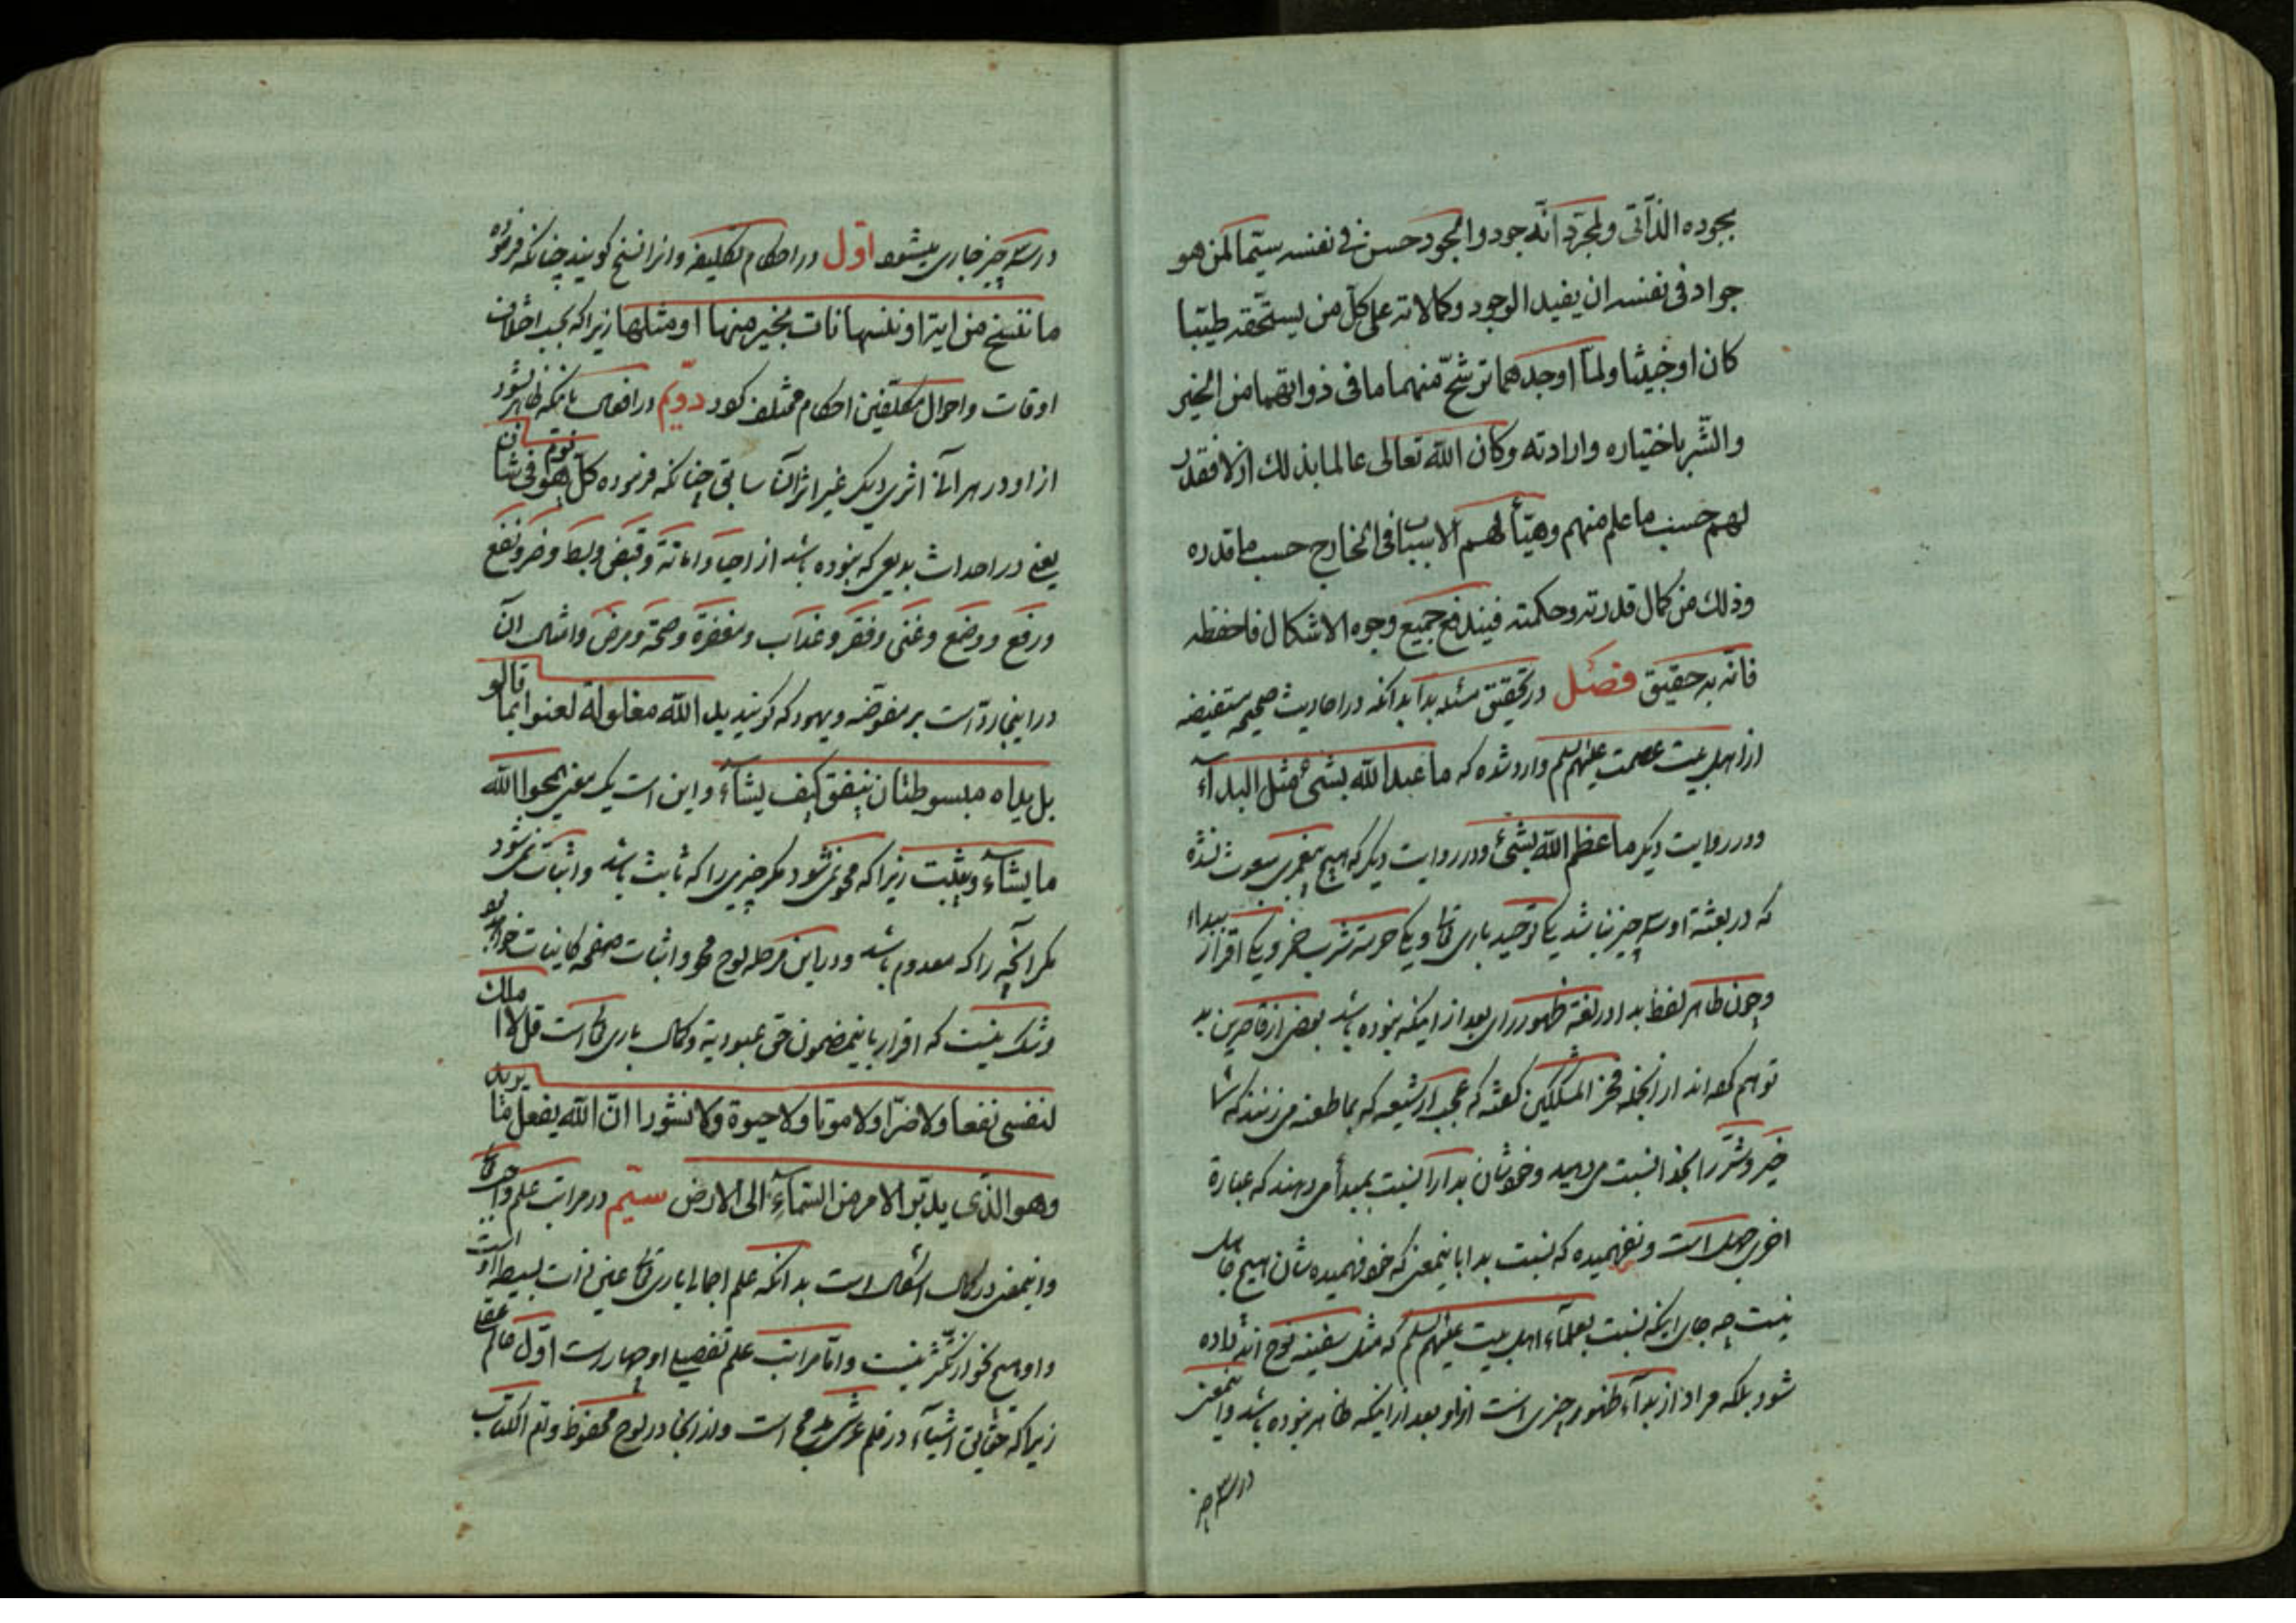 بجوده الذّاتی ولمجرّد انّه جود والجود حسن فی نفسه سیّما لمن هو
جواد فی نفسه ان یفید الوجود وکمالاته علی کلّ من یستحقّه طیّبا
کان او خبیثا ولمّا اوجدهما ترشّح منهما ما فی ذواتهما من الخیر
والشّر باختیاره وارادته وکان الله تعالی عالما بذلک ازلا فقدر
لهم حسب ما علم منهم وهیّأ لهم الاسباب فی الخارج حسب ما قدره
وذلک من کمال قدرته وحکمته فیندفع جمیع وجوه الاشکال فاحفظه
فانّه به حقیق فصل در تحقیق مسئله بدا بدانکه در احادیث صحیحه مستفیضه
از اهل بیت عصمت علیهم السلم وارد شده که ما عبد الله بشیء مثل البدآء
ودر روایت دیگر ما عظم الله بشیء ودر روایت دیگر که هیچ پیغمبری مبعوث نشده
که در بعثة او سه چیز نباشد یکی توحید باری تعالی ویکی حرمة شرب خمر ویکی اقرار ببداء
وچون ظاهر لفظ بدا در لغة ظهور رای بعد از اینکه نبوده باشد بعضی از قاصرین بد
توهم کرده اند از انجمله فخر المشککین گفته که عجب از شیعه که بما طعنه می زنند که شما
خیر وشرّ را بخدا نسبت می دهید وخودشان بدا را نسبت بمبدأ می دهند که عبارة
اخری جهل است ونفهمیده که نسبت بدا باینمعنی که خود فهمیده شان هیچ جاهل
نیست چه جای اینکه نسبت بعلمآء اهل بیت علیهم السلم که مثل سفینه نوح اند داده
شود بلکه مراد از بدآء ظهور چیزی است از او بعد از اینکه ظاهر نبوده باشد واینمعنی
در سه چیز
در سه چیز جاری میشود اوّل در احکام تکلیفیه وانرا نسخ گویند چنانکه فرموده
ما ننسخ من ایة او ننسها نات بخیر منها او مثلها زیرا که بحسب اختلاف
اوقات واحوال مکلّفین احکام مختلف گردد دویّم در افعال بانکه ظاهر بشود
از او در هر آن اثری دیگر غیر اثر آن سابق چنانکه فرموده کلّ یوم هو فی شان
یعنی در احداث بدیعی که نبوده باشد از احیا واماتة وقبض وبسط وضر ونفع
ورفع ووضع وغنی وفقر وعذاب ومغفرة وصحة ومرض وامثال ان
در اینجا ردّ است بر مفوّضه ویهود که گویند ید الله مغلولة لعنوا بما قالو
بل یداه مبسوطتان ینفق کیف یشآء واین است یک معنی یمحوا الله
ما یشآء ویثبت زیرا که محو نمی شود مگر چیزی را که ثابت باشد واثبات نمی شود
مگر آنچه را که معدوم باشد ودر این مرحله لوح محو واثبات صفحه کاینات خواهد بود
وشک نیست که اقرار باینمضمون حق عبودیة وکمال باری تعالی است قل لا املک
لنفسی نفعا ولا ضرّا ولا موتا ولا حیوة ولا نشورا انّ الله یفعل ما یرید
وهو الذی یدبّر الامر من السّمآءِ الی الارض سیّم در مراتب علم واجب تعالی
واینمعنی در کمال اشکال است بدانکه علم اجمالی باری تعالی عین ذات بسیط او است
واو هیچ نحو از تکثّر نیست وامّا مراتب علم تفصیلی او چهار است اوّل عالم عقل
زیرا که حقایق اشیآء در قلم عرش طرح است واز انجا در لوح محفوظ وامّ الکتاب